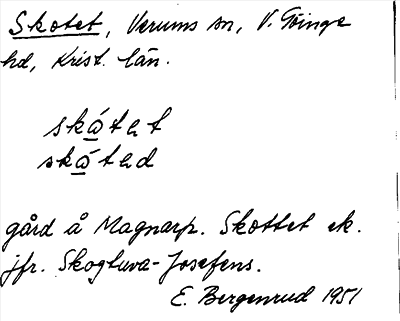 Skotet, Verums sn, V. Göinge
hd, Krist. län.
skǻtet
skǻted
gård å Magnarp. Skottet ek.
jfr. Skogtuva-Josefens.
E. Bergenrud 1951